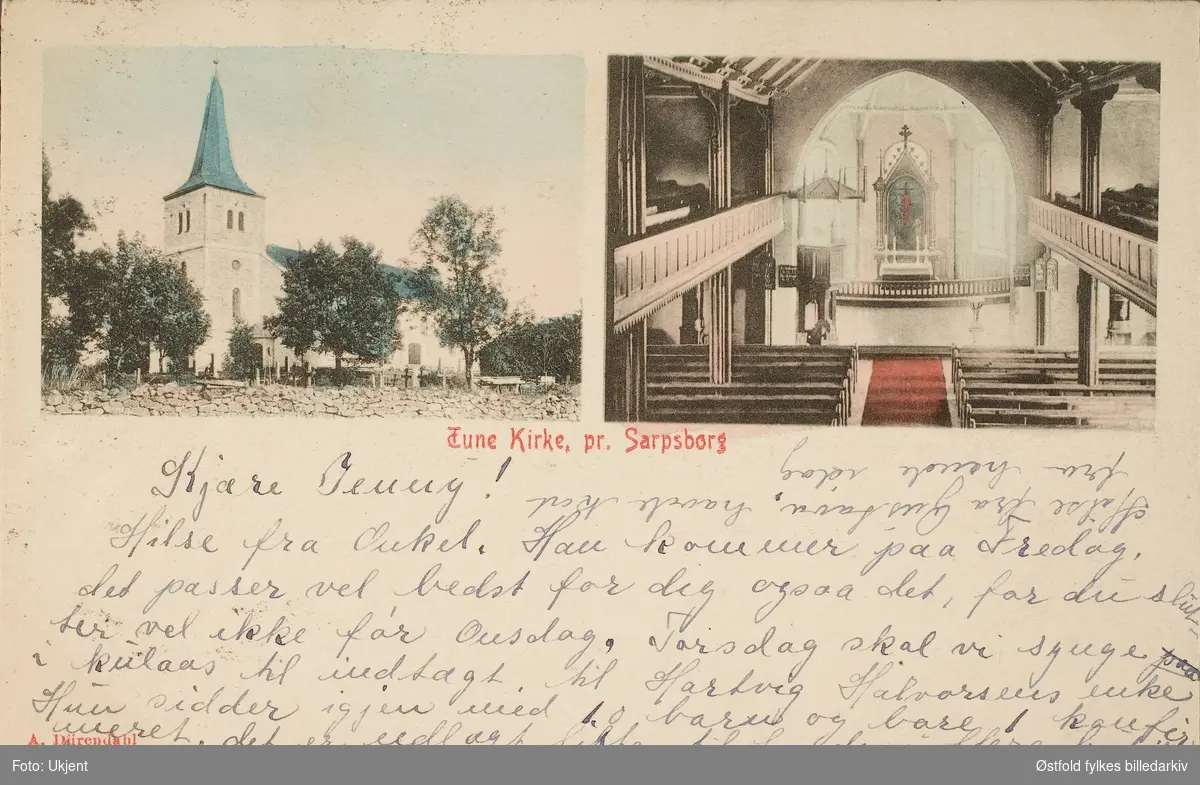 Tune Kirke, pr. Sarpsborg
Kjære Jenny!
Hilse fra Onkel. Han kommer paa Fredag,
det passer vel bedst for dig ogsaa det, for du slut-
ter vel ikke før Onsdag. Torsdag skal vi synge paa
i kulaas til indtægt til Hartvig Halvorsens enke
Hun sidder igjen med 10 barn og bare 1 konfir
meret. det er udlagt
Hilse fra Gustava, havde kort
fra hende idag
A. Dürendahl
Foto: Ukjent
Østfold fylkes billedarkiv